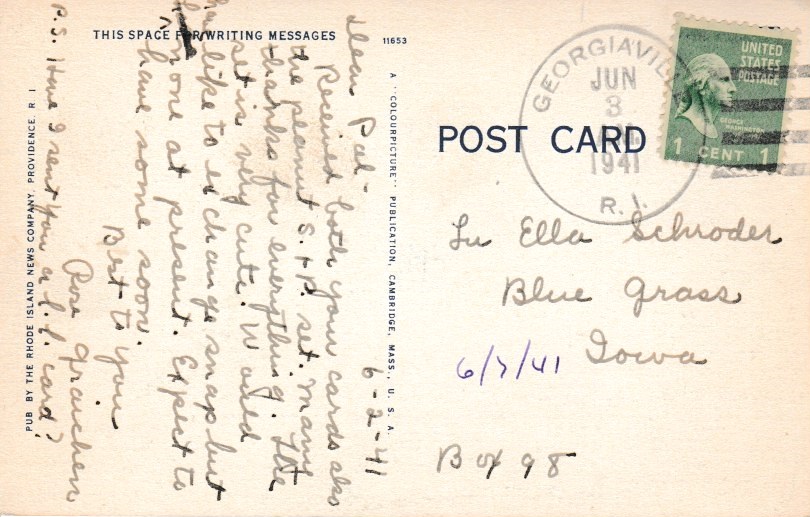 THIS SPACE FOR WRITING MESSAGES
11653
6-2-41
Dear Pal-
Received both your cards also
the peanut S. + P. set. Many
thanks for everything. The
set is very cute. Would
like to exchange snap but
none at present. Expect to
have some soon.
Best to you
Rose Graichen
P.S. Have I sent you a R.I. card?
PUB BY THE RHODE ISLAND NEWS COMPANY, PROVIDENCE, R. I.
A "COLOURPICTURE" PUBLICATION, CAMBRIDGE, MASS., U. S. A.
POST CARD
GEORGIAVIL
JUN
3
A.M.
1941
R. I.
UNITED
STATES
POSTAGE
GEORGE
WASHINGTON
1 CENT 1
Lu Ella Schroder
Blue Grass
Iowa
6/7/41
Box 98